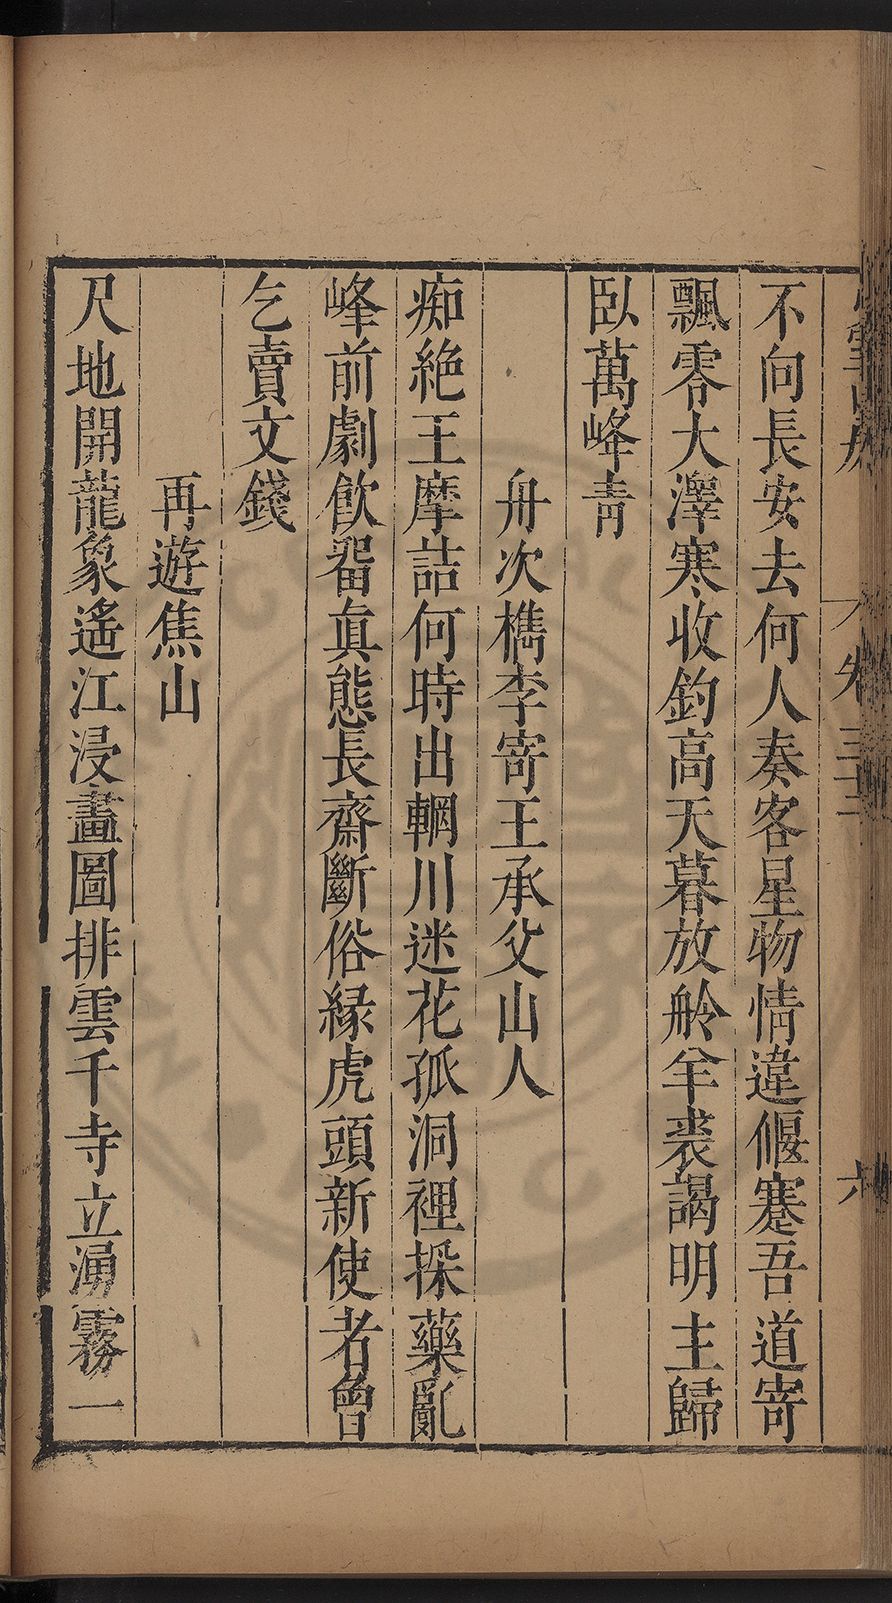 卷三十三
六
不向長安去何人奏客星物情違偃蹇吾道寄
飄零大澤寒收釣高天暮放舲羊裘謁明主歸
臥萬峰靑
舟次檇李寄王承父山人
痴絶王摩詰何時出輞川迷花孤洞裡採藥亂
峰前劇飲畱眞態長齋斷俗緣虎頭新使者曾
乞賣文錢
再遊焦山
尺地開龍象遙江浸畫圖排雲千寺立湧霧一